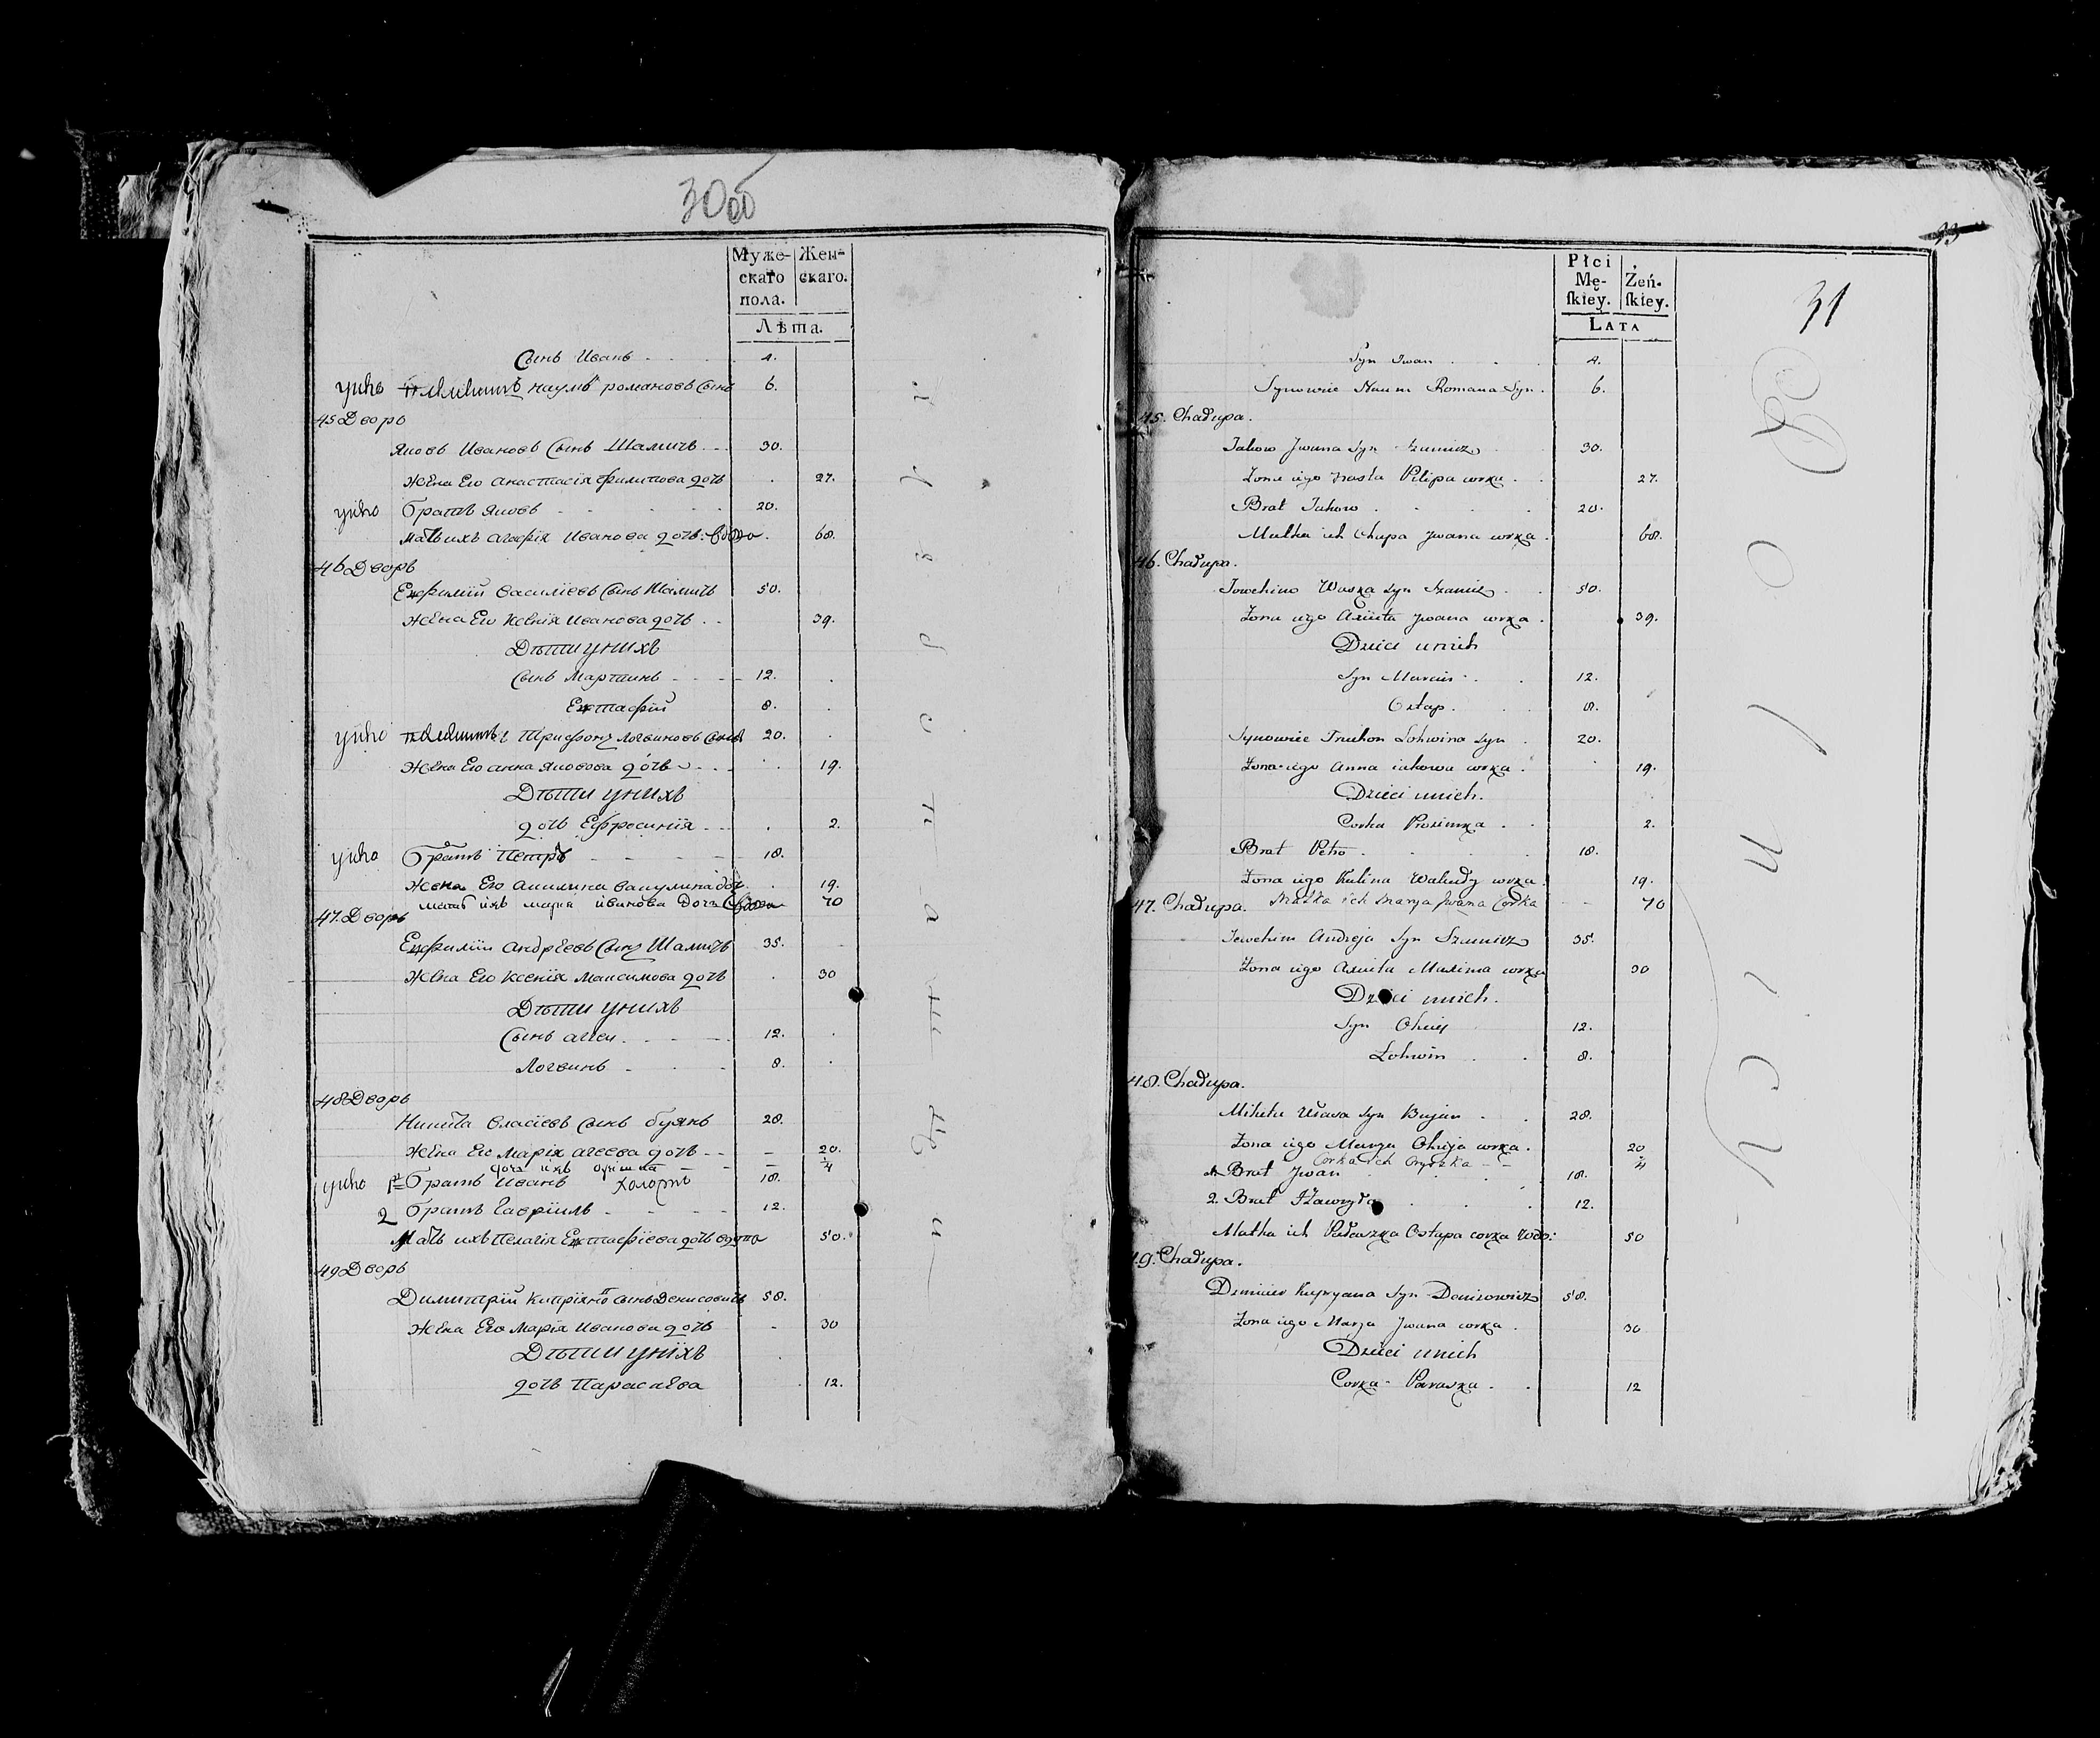 30об
Муже-
скаго
пола.
Жен-
скаго.
Лѣта.
Сынъ Иванъ 4.
Наумъ романовъ Сынъ 6.
45 Дворъ
Яковъ Ивановъ Сынъ Шамичъ 30.
Жена Его Анастасія Филипова дочь 27.
Братъ Яковъ 20.
Мать ихъ Агафія Иванова дочь вдова 68.
46 Дворъ
Ефимій Василіевъ Сынъ Шамичъ 50.
Жена Его Ксенія Иванова дочь 39.
Дѣти унихъ
Сынъ Мартинъ 12.
Евстафій 8.
Трифонъ Логвиновъ Сынъ 20.
Жена Его Анна Яковова дочь 19.
Дѣти унихъ
дочь Ефросинія 2.
Братъ Петръ 18.
Жена Его Акилина дочь 19.
мать ихъ марія иванова дочь вдова 70
47. Дворъ
Ефимій Андреевъ Сынъ Шамичъ 35.
Жена Его Ксенія Максимова дочь 30
Дѣти унихъ
Сынъ Агей 12.
Логвинъ 8.
48 Дворъ
Никита Власіевъ Сынъ Буянъ 28.
Жена Его Марія Агеева дочь 20.
дочь ихъ оришка 1/4
Братъ Иванъ холостъ 18.
2 Братъ Гавріилъ 12.
Мать ихъ Пелагія Евстафіева дочь вдова 50.
49 Дворъ
Димитрій Кипріяновъ сынъ Денисовичъ 58.
Жена Его Марія Иванова дочь 30
Дѣти унихъ
дочь Параскева 12.
33
31
Płci
Mę-
skiey.
Żeń-
skiey.
LATA
Syn Iwan 4.
Synowiec Naum Romana Syn 6.
45. Chałupa.
Jakow Jwana Syn Szamicz 30.
Żona iego Nasta Pilipa corka 27.
Brat Jakow 20.
Matka ich Ohapa Jwana corka 68.
46. Chałupa.
Jowchim Waska Syn Szamicz 50.
Żona iego Axiuta Jwana corka 39.
Dzieci unich
Syn Marcin 12.
Ostap 8.
Synowiec Truchon Lohwina Syn 20.
Żona iego Anna iakowa corka 19.
Dzieci unich.
Corka Prosimka 2.
Brat Petro 18.
Żona iego Kulina corka 19.
Matka ich Marya Jwana Corka 70
47. Chałupa.
Jewchim Andreja Syn Szamicz 35.
Żona iego Axiuta Maxima corka 30
Dzieci unich.
Syn Ohiey 12.
Lohwin 8.
48. Chałupa.
Mikita Ułasa Syn Bujan 28.
Żona iego Marya Ohieja corka 20
Corka ich Oryszka 1/4
Brat Jwan 18.
2. Brat Hawryło 12.
Matka ich Pałaszka Ostapa corka wdo: 50
49. Chałupa.
Dzmicier Kupryana Syn Denisowicz 58.
Żona iego Marya Jwana corka 30
Dzieci unich
Corka Paraska 12